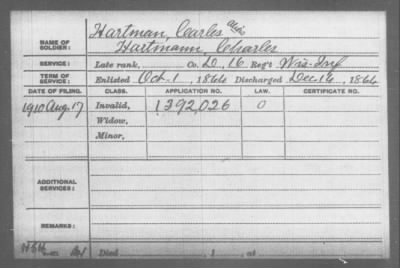 Hartman, Cearles Alias
NAME OF SOLDIER: Hartmann, Charles
SERVICE: Late rank, Co. D, 16 Reg't Wis. Inf
TERM OF SERVICE: Enlisted Oct. 1, 1864 Discharged Dec 14, 1864
DATE OF FILING. CLASS. APPLICATION NO. LAW. CERTIFICATE NO.
1910 Aug. 17 Invalid, 1392,026 O
Widow,
Minor,
ADDITIONAL SERVICES:
REMARKS:
Died , 1 , at